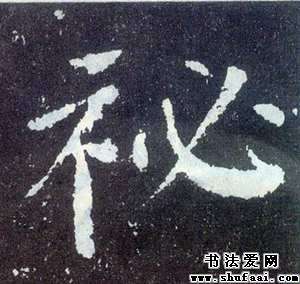 祕
书法爱网
www.shufaai.com